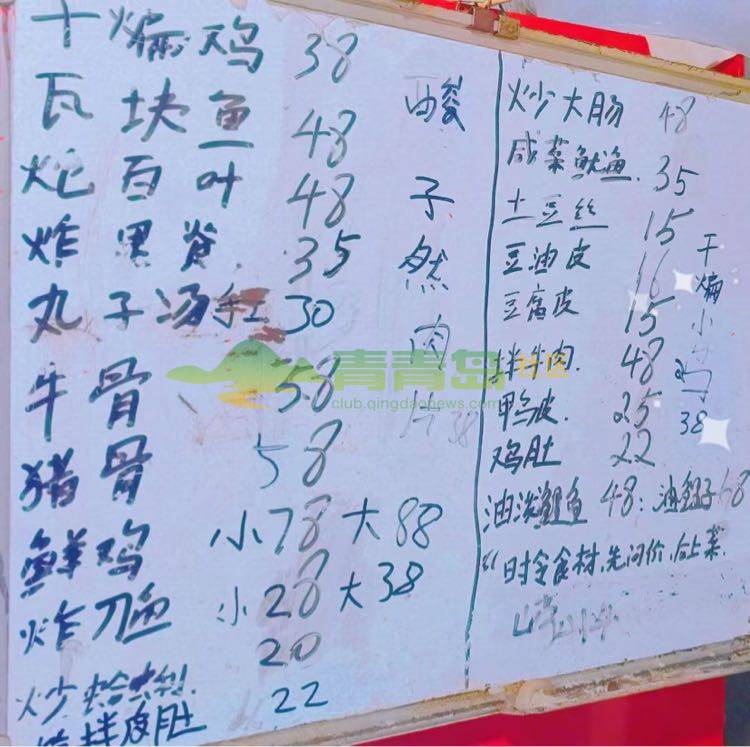 干煸鸡 38
瓦块鱼 48
炝百叶 48
炸里脊 35
丸子汤 30
牛骨 58
猪骨 58
鲜鸡 小78 大88
炸刀鱼 小28 大38
20
炒蛤蜊 22
拌皮肚
孜然肉片 38
炒大肠 48
咸菜鱿鱼 35
土豆丝 15
豆油皮 16
豆腐皮 15
拌牛肉 48
甲鸟皮 25
鸡肚 22
干煸小鸡 38
油泼鲤鱼 48:
时令食材,先问价,后上菜.
青青岛社区
club.qingdaonews.com